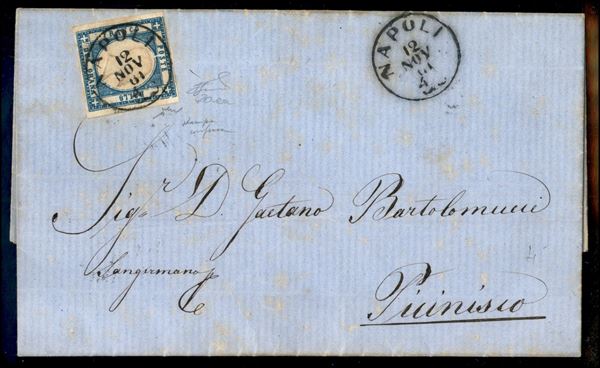 NAPOLI
12
NOV
61
NAPOLI
12
NOV
61
Sigr D. Gaetano Bartolomucci
Sangermano p
Picinisco